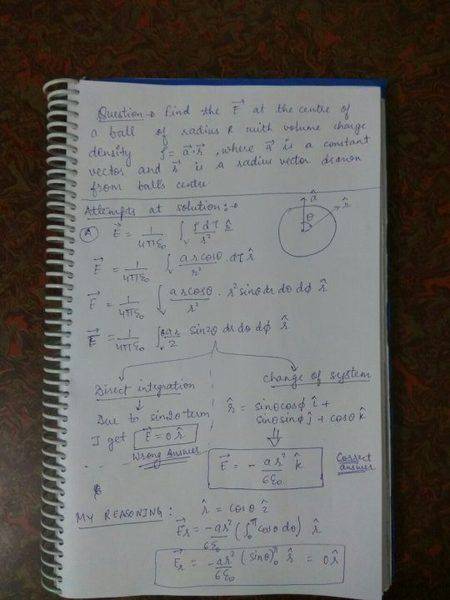 Question → Find the E⃗ at the centre of
a ball of radius R with volume charge
density ρ = a⃗·r⃗, where a⃗ is a constant
vector and r⃗ is a radius vector drawn
from balls centre
Attempts at solution:→
â
r̂
θ
(A) E⃗ = 1/4πε₀ ∫ᵥ ρdτ/r² r̂
E⃗ = 1/4πε₀ ∫ᵥ arcosθ/r² · dτ r̂
E⃗ = 1/4πε₀ ∫ arcosθ/r² · r² sinθ dr dθ dϕ r̂
E⃗ = 1/4πε₀ ∫ᵥ ar/2 sin2θ dr dθ dϕ r̂
Direct integration
Due to sin2θ term
I get E⃗ = 0 r̂
Wrong Answer
Change of system
r̂ = sinθcosϕ î +
sinθsinϕ ĵ + cosθ k̂
E⃗ = - ar²/6ε₀ k̂
Correct answer
MY REASONING : r̂ = cosθ ẑ
E⃗r = -ar²/6ε₀ (∫₀^π cosθ dθ) r̂
E⃗r = -ar²/6ε₀ (sinθ)₀^π r̂ = 0r̂